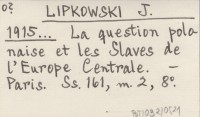 02 LIPKOWSKI J.
1915... La question polo
naise et les Slaves de
l'Europe Centrale. —
Paris. Ss. 161, m. 2, 8°.